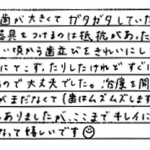 歯が大きくてガタガタしていた
器具をつけるのは抵抗があった
い頃から歯並びをきれいにし
にてこず、たりしたけれどすぐに
ので大丈夫でした。治療を開
がまだなくて(歯はムズムズします
ありましたが、ここまでキレイに
なって嬉しいです☺